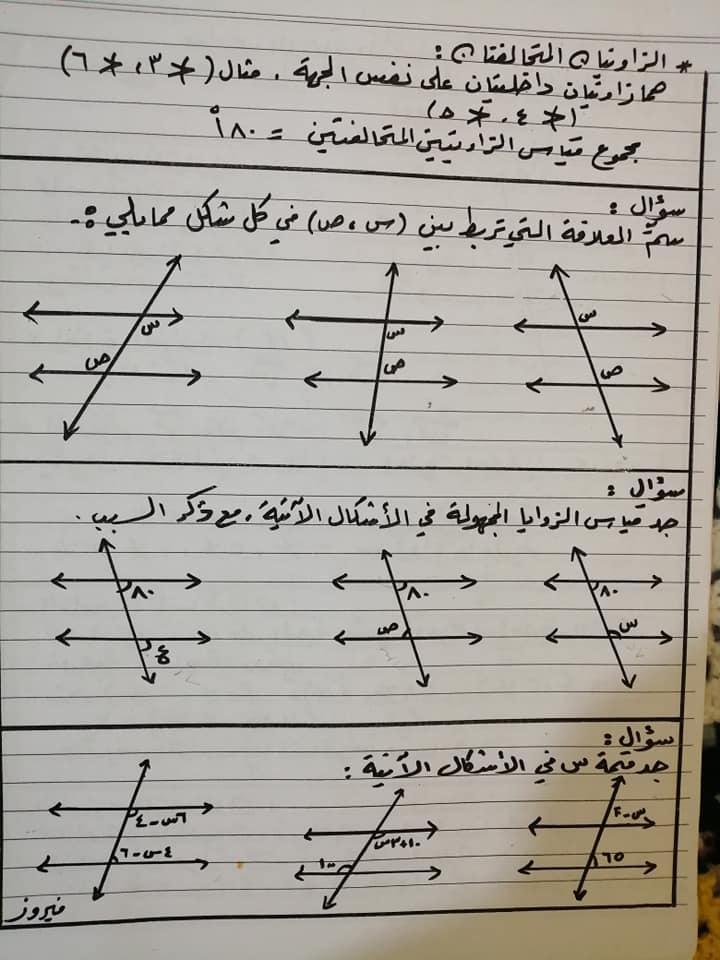 * الزاويتان المتحالفتان:
هما زاويتان داخليتان على نفس الجهة . مثال (∡٣ ، ∡٦)
(∡٤ ، ∡٥)
مجموع قياس الزاويتين المتحالفتين = ١٨٠°
سؤال :
سمّ العلاقة التي تربط بين (س ، ص) في كل شكل مما يلي :-
س
ص
س
ص
س
ص
سؤال :
جد قياس الزوايا المجهولة في الأشكال الآتية ، مع ذكر السبب .
٨٠
س
٨٠
ص
٨٠
ع
سؤال :
جد قيمة س في الأشكال الآتية :
س-٢٠
٦٥
٣س+١٠
١٠٠
٦س-٤
٤س-٦
فيروز